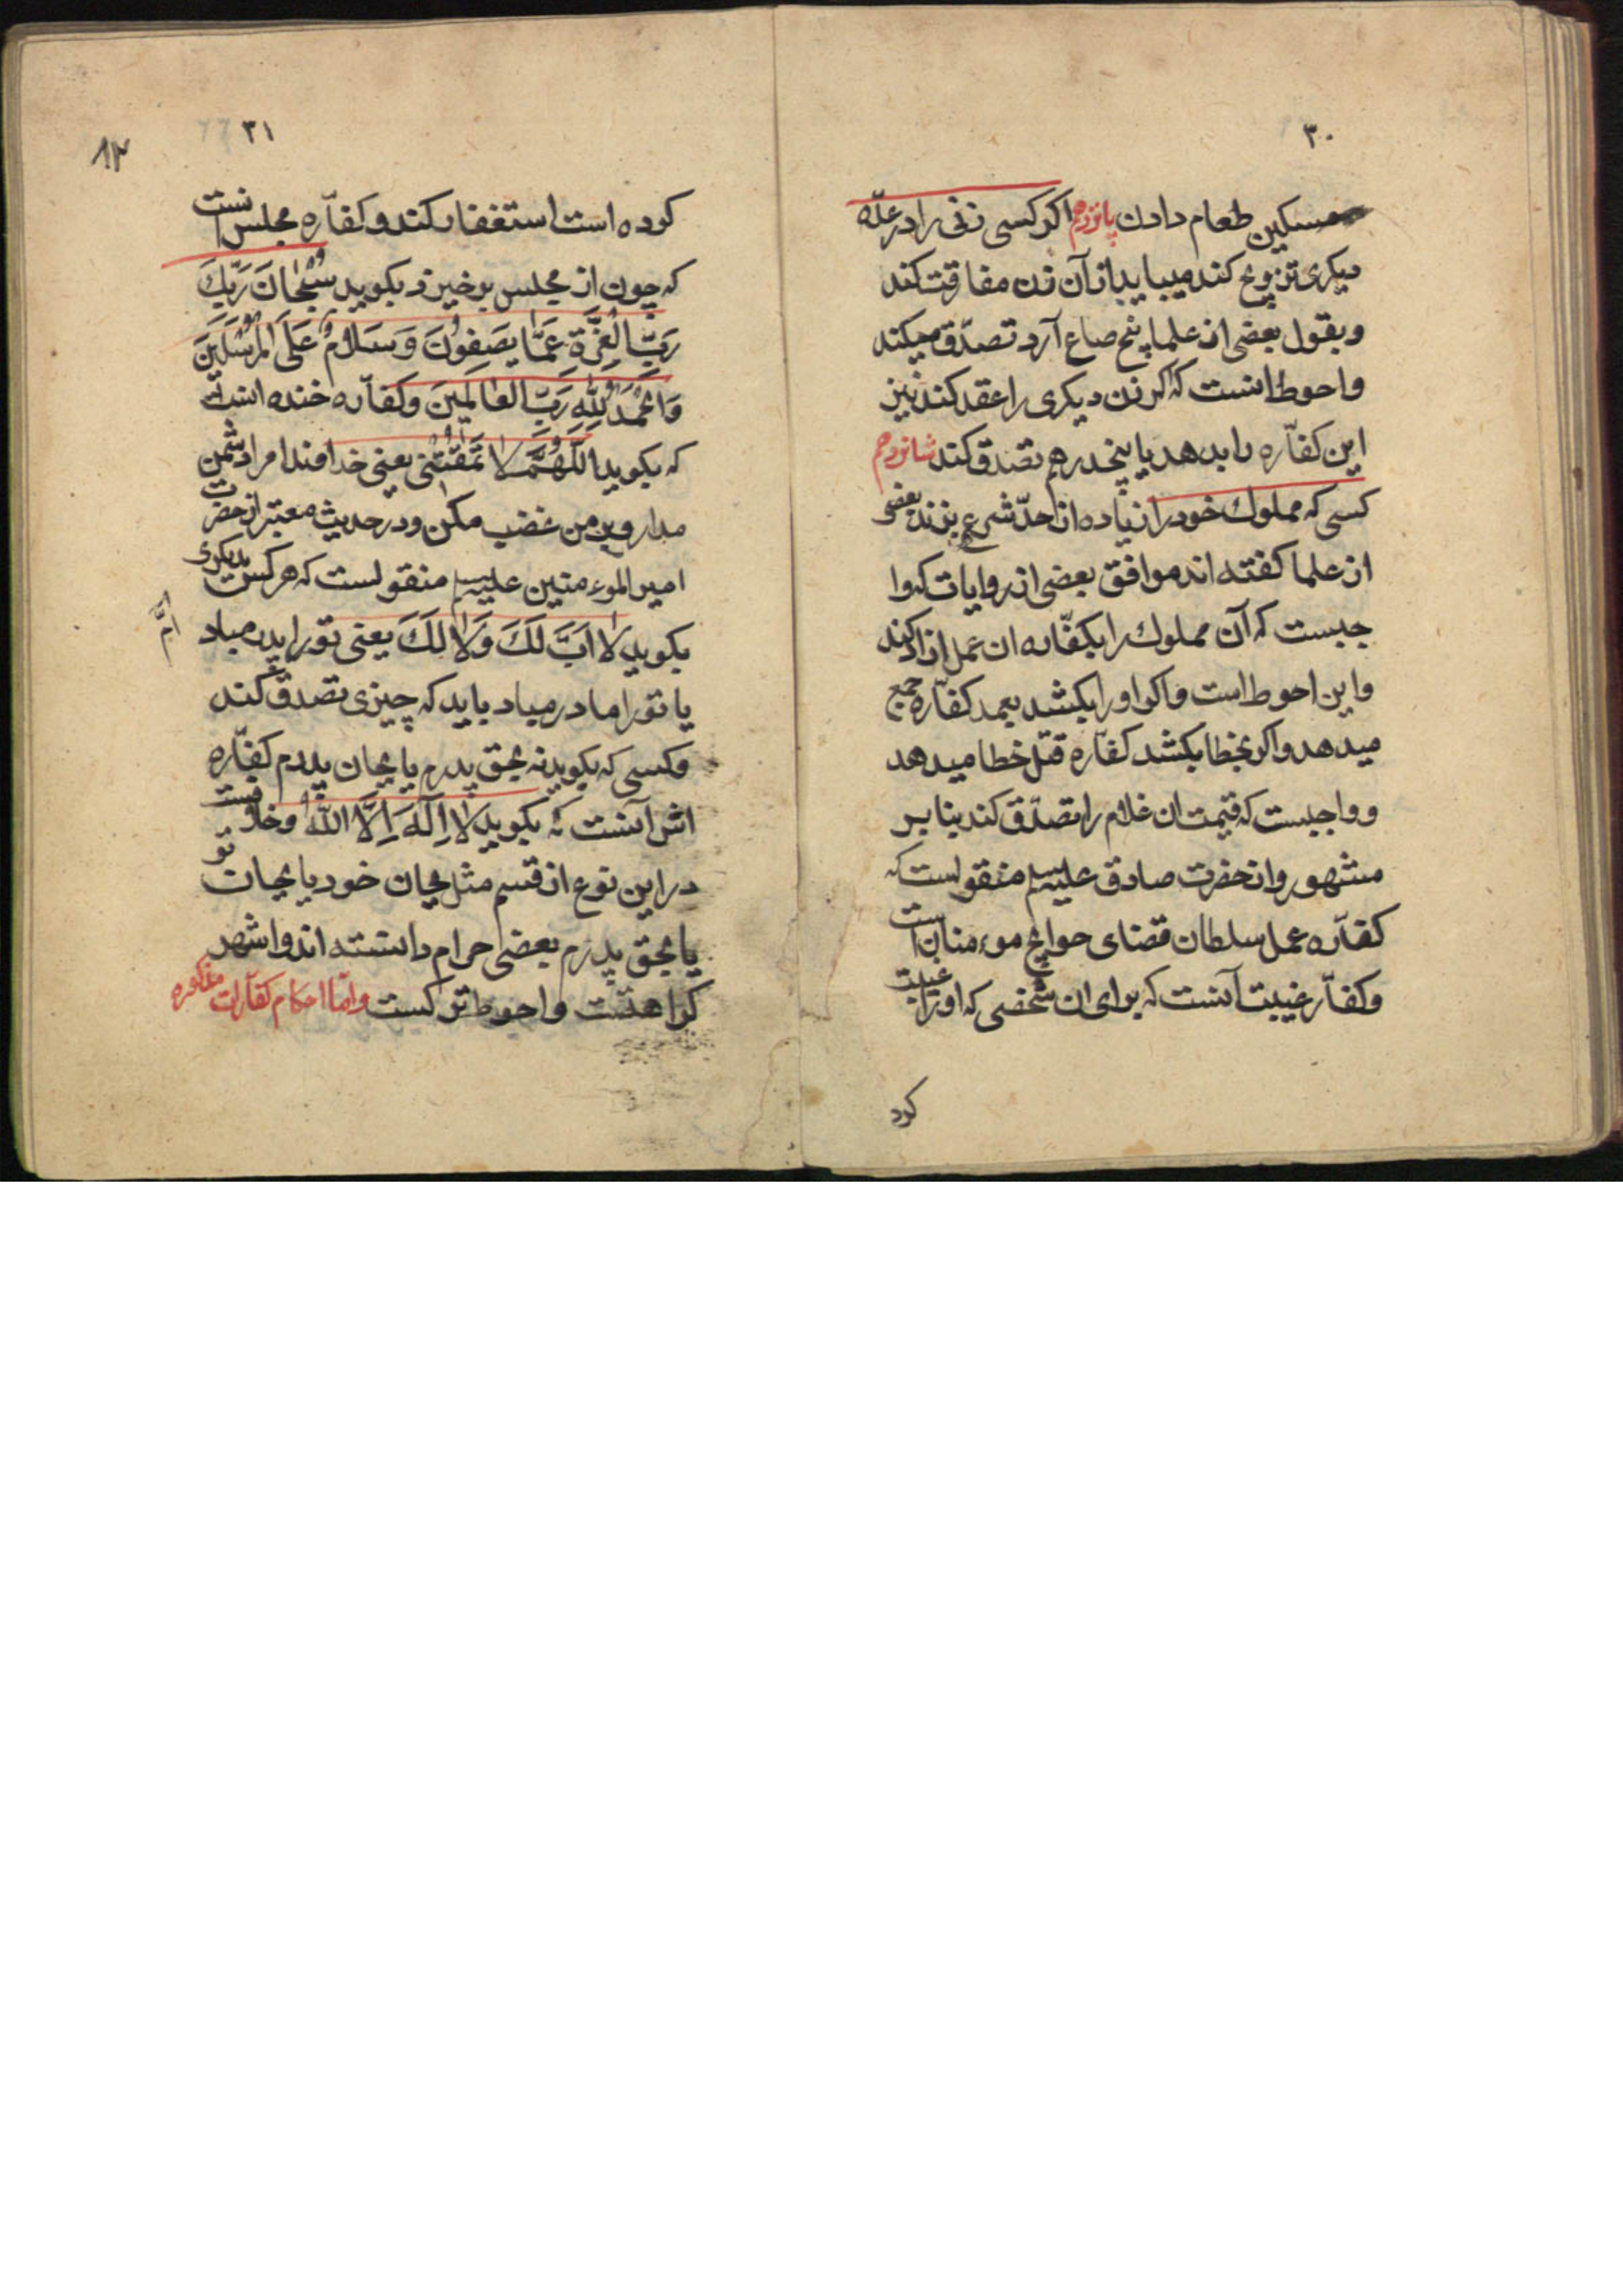 ۳۰
مسکین طعام دادن پانزدهم اکر کسی زنی را در عدّه
دیکری تزویج کند میباید از آن زن مفارقت کند
وبقول بعضی از علما پنج صاع آرد تصدّق میکند
واحوط انست که اکر زن دیکری را عقد کند نیز
این کفّاره را بدهد یا پنجدرهم تصدق کند شانزدهم
کسی که مملوك خود را زیاده از حدّ شرع بزند بعضی
از علما کفته اند موافق بعضی از روایات که وا
جبست که آن مملوك را بکفّاره ان عمل ازاد کند
واین احوط است واکر او را بکشد بعمد کفّاره جمع
میدهد واکر بخطا بکشد کفّاره قتل خطا میدهد
و واجبست که قیمت ان غلام را تصدّق کند بنا بر
مشهور واز حضرت صادق علیه منقولست که
کفّاره عمل سلطان قضای حوایج موءمنان است
وکفّار غیبت آنست که برای ان شخصی که اورا غیبت
کرد
۳۱
۱۳
کرده است استغفار کند وکفّاره مجلس انست
که چون از مجلس برخیزد بکوید سُبْحَانَ رَبِّكَ
رَبِّ الْعِزَّةِ عَمَّا یَصِفُونَ وَسَلَامٌ عَلَی الْمُرْسَلِینَ
وَالْحَمْدُ لِلّٰهِ رَبِّ الْعَالَمِینَ وکفّاره خنده انست
که بکوید اَللّٰهُمَّ لَا تَمْقُتْنِی یعنی خداوندا مرا دشمن
مدار وبر من غضب مکن ودر حدیث معتبر از حضرت
امیر الموءمنین علیه منقولست که هر کس بدیکری
بکوید لَا اَبَ لَكَ وَلَا لَكَ یعنی تو را پدر مباد
اُمَّ
یا تو را مادر مباد باید که چیزی تصدق کند
وکسی که بکوید نه بحق پدرم یا بجان پدرم کفّاره
اش آنست که بکوید لَا اِلٰهَ اِلَّا اللّٰهُ وخلافست
در این نوع از قسم مثل بجان خود یا بجان تو
یا بحق پدرم بعضی حرام دانسته اند واشهر
کراهتست واحوط ترکست وامّا احکام کفّارات مذکوره